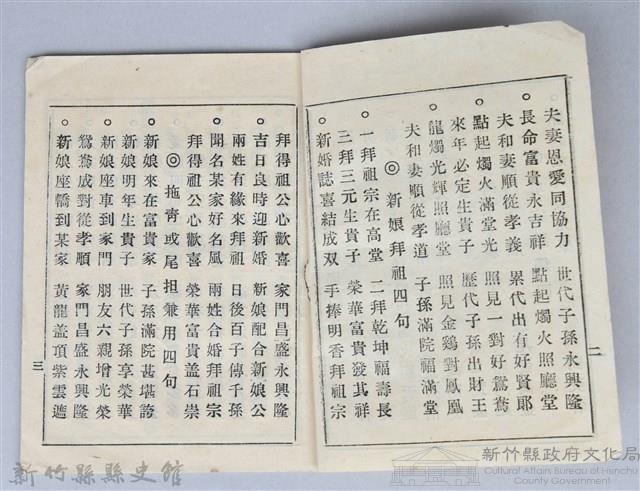 夫妻恩愛同協力　世代子孫永興隆
。長命富貴永吉祥　點起燭火照廳堂
夫和妻順從孝義　累代出有好賢郎
。點起燭火滿堂光　照見一對好鴛鴦
來年必定生貴子　歷代子孫出財王
。龍燭光輝照廳堂　照見金鷄對鳳凰
夫和妻順從孝道　子孫滿院福滿堂
◎新娘拜祖四句
。一拜祖宗在高堂　二拜乾坤福壽長
三拜三元生貴子　榮華富貴發其祥
。新婚誌喜結成双　手捧明香拜祖宗
二
拜得祖公心歡喜　家門昌盛永興隆
。吉日良時迎新婚　新娘配合新娘公
兩姓有緣來拜祖　日後百子傳千孫
。聞名某家好名風　兩姓合婚拜祖宗
拜得祖公心歡喜　榮華富貴盖石崇
◎拖青或尾担兼用四句
。新娘來在富貴家　子孫滿院甚堪誇
新娘明年生貴子　世代子孫享榮華
。新娘座車到家門　朋友六親增光榮
鴛鴦成對從孝順　家門昌盛永興隆
。新娘座轎到某家　黃龍盖頂紫雲遮
三
新竹縣縣史館
新竹縣政府文化局
Cultural Affairs Bureau of Hsinchu
County Government